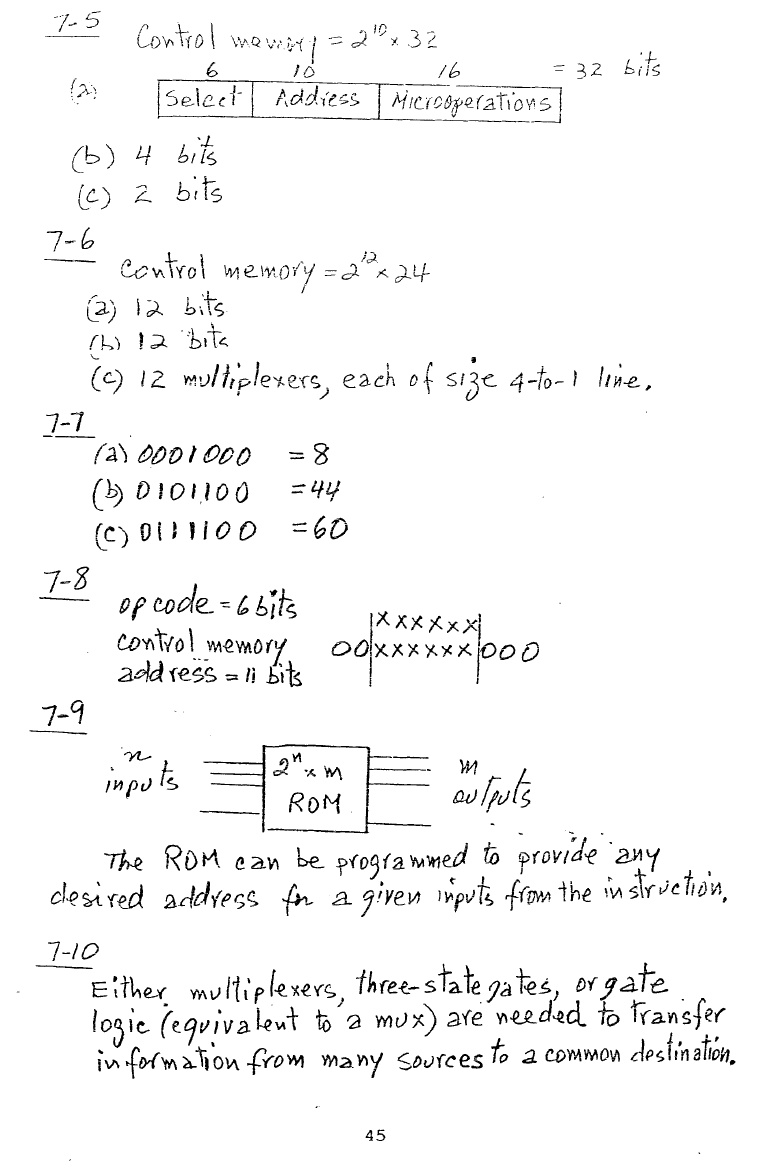 7-5
Control memory = 2^10 × 32
6 10 16 = 32 bits
(a) Select Address Microoperations
(b) 4 bits
(c) 2 bits
7-6
Control memory = 2^12 × 24
(a) 12 bits
(b) 12 bits
(c) 12 multiplexers, each of size 4-to-1 line.
7-7
(a) 0001000 = 8
(b) 0101100 = 44
(c) 0111100 = 60
7-8
opcode = 6 bits
XXXXXX
control memory
00 XXXXXX 000
address = 11 bits
7-9
n
inputs
2^n × m
ROM
m
outputs
The ROM can be programmed to provide any
desired address for a given inputs from the instruction.
7-10
Either multiplexers, three-state gates, or gate
logic (equivalent to a mux) are needed to transfer
information from many sources to a common destination.
45